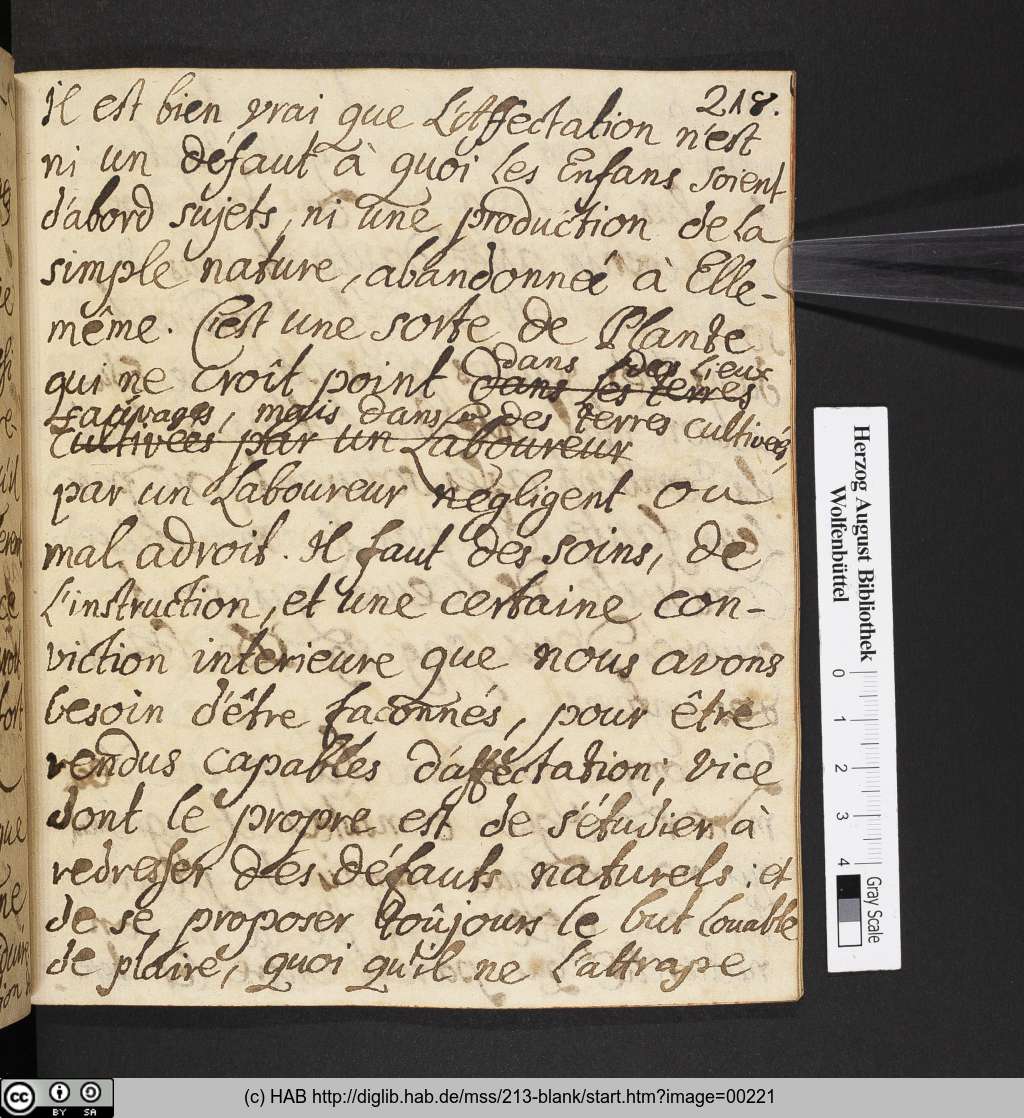 218.
il est bien vrai que L'Affectation n'est
ni un défaut à quoi les Enfans soient
d'abord sujets, ni une production de la
simple nature, abandonnée à Elle-
même. C'est une sorte de Plante
dans des Lieux
qui ne croît point dans les terres
sauvages, mais dans des terres cultivées,
cultivées par un Laboureur
par un Laboureur négligent ou
mal adroit. Il faut des soins, de
L'instruction, et une certaine con-
viction intérieure que nous avons
besoin d'être façonnés, pour être
rendus capables d'affectation; vice
dont le propre est de s'étudier à
redresser des défauts naturels: et
de se proposer toûjours le but louable
de plaire, quoi qu'il ne L'attrape
Herzog August Bibliothek
Wolfenbüttel
0 1 2 3 4
Gray Scale
cc BY SA
(c) HAB http://diglib.hab.de/mss/213-blank/start.htm?image=00221